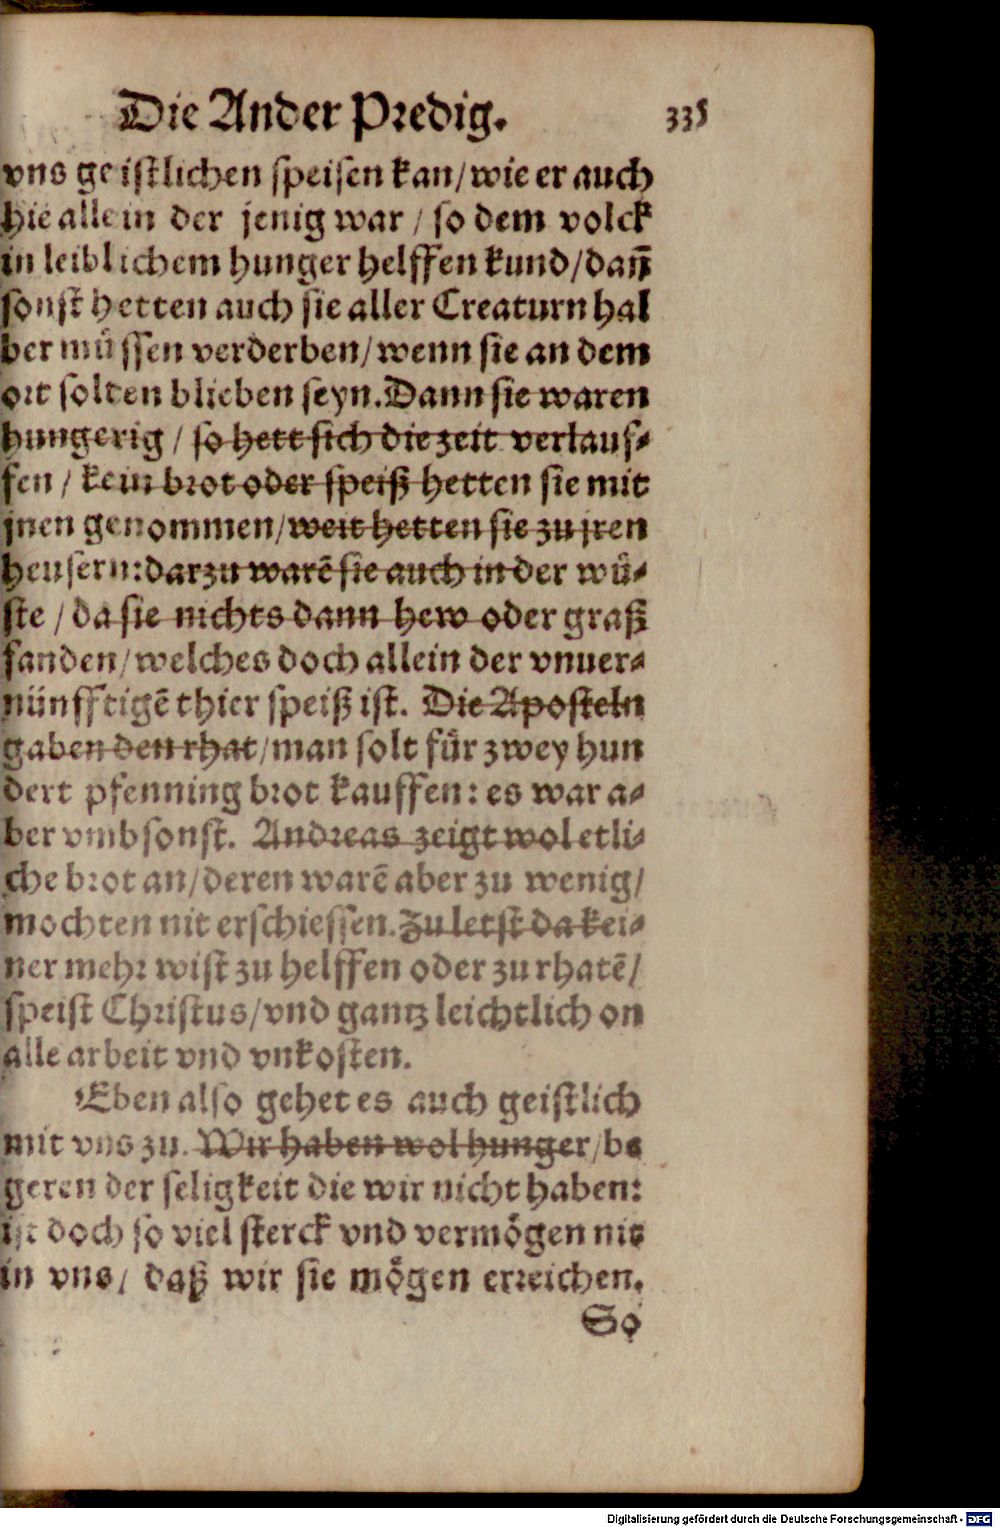 Die Ander Predig. 335
vns geistlichen speisen kan/wie er auch
hie allein der jenig war / so dem volck
in leiblichem hunger helffen kund/dañ
sonst hetten auch sie aller Creaturn hal
ber müssen verderben/wenn sie an dem
ort solten blieben seyn. Dann sie waren
hungerig / so hett sich die zeit verlauf-
fen / kein brot oder speiß hetten sie mit
jnen genommen/weit hetten sie zu jren
heusern: darzu warē sie auch in der wü-
ste / da sie nichts dann hew oder graß
fanden/welches doch allein der vnuer-
nünfftigē thier speiß ist. Die Aposteln
gaben den rhat/man solt für zwey hun
dert pfenning brot kauffen: es war a-
ber vmbsonst. Andreas zeigt wol etli-
che brot an/deren warē aber zu wenig/
mochten nit erschiessen. Zu letst da kei-
ner mehr wist zu helffen oder zu rhatē/
speist Christus/vnd gantz leichtlich on
alle arbeit vnd vnkosten.
Eben also gehet es auch geistlich
mit vns zu. Wir haben wol hunger/be
geren der seligkeit die wir nicht haben:
ist doch so viel sterck vnd vermögen nit
in vns/ daß wir sie mögen erreichen.
So
Digitalisierung gefördert durch die Deutsche Forschungsgemeinschaft - DFG